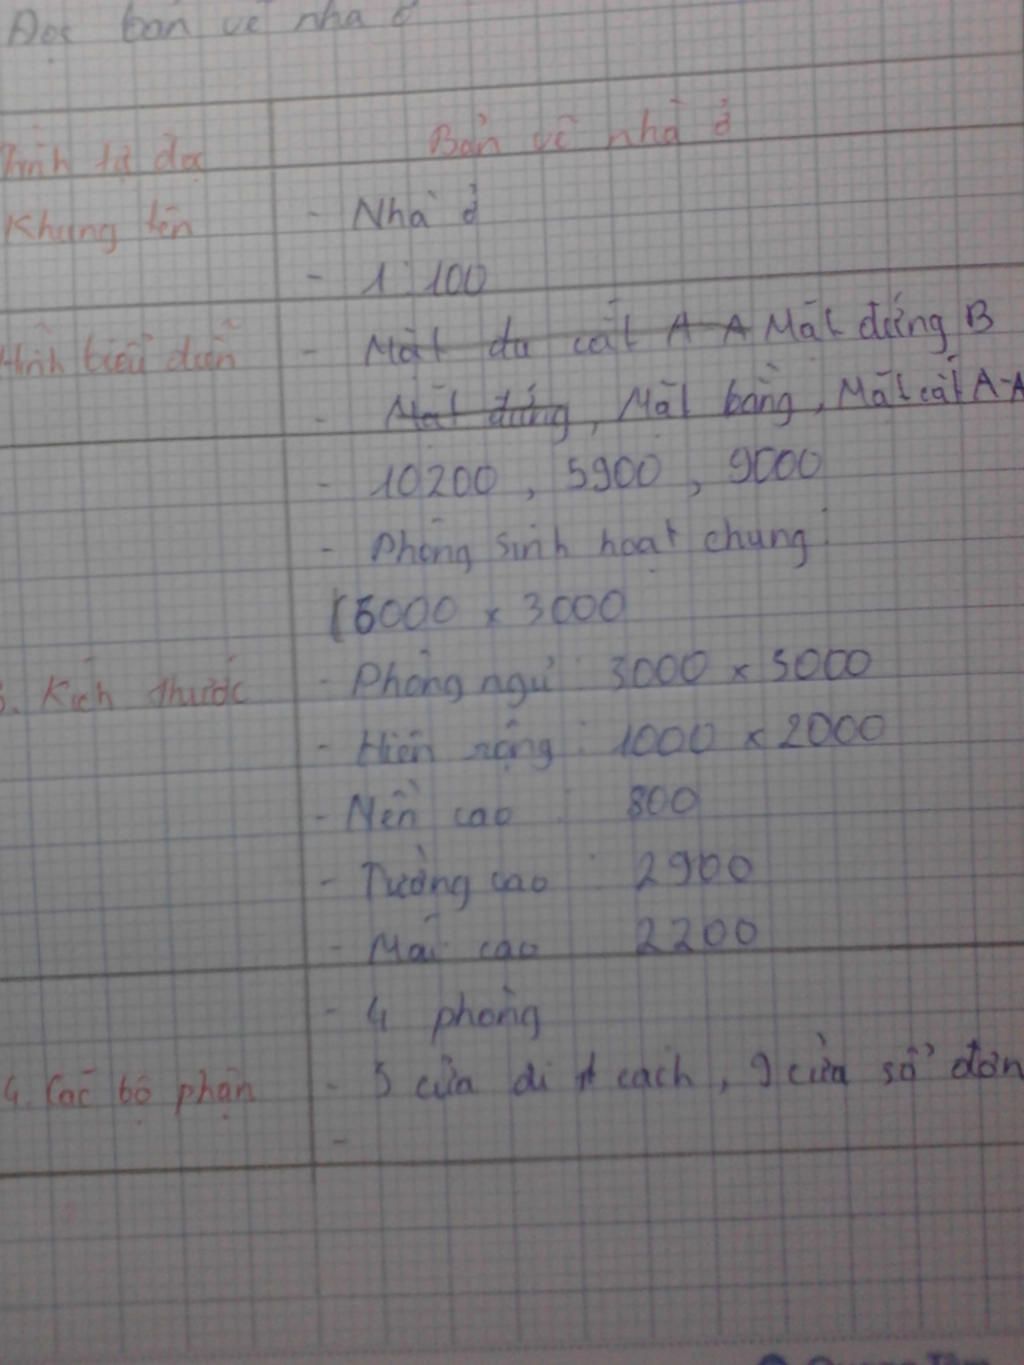 Đọc bản vẽ nhà ở
Trình tự đọc Bản vẽ nhà ở
Khung tên - Nhà ở
- 1:100
Hình biểu diễn - Mặt đứng B
- Mặt bằng, Mặt cắt A-A
- 10200, 5900, 9000
- Phòng sinh hoạt chung:
(5000 x 3000
3. Kích thước - Phòng ngủ: 3000 x 5000
- Hiên rộng: 1000 x 2000
- Nền cao: 800
- Tường cao: 2900
- Mái cao 2200
- 4 phòng
4. Các bộ phận - 5 cửa đi 1 cách, 9 cửa sổ đơn
-